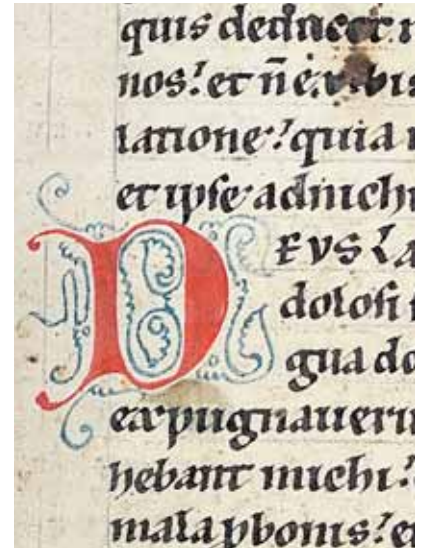 quis deducet
nos؛ et n̄ exibis
latione؛ quia
et ipse adnichi
DEVS LA
dolosi
gua do
expugnaueru
hebant michi؛
mala pbonis؛ et